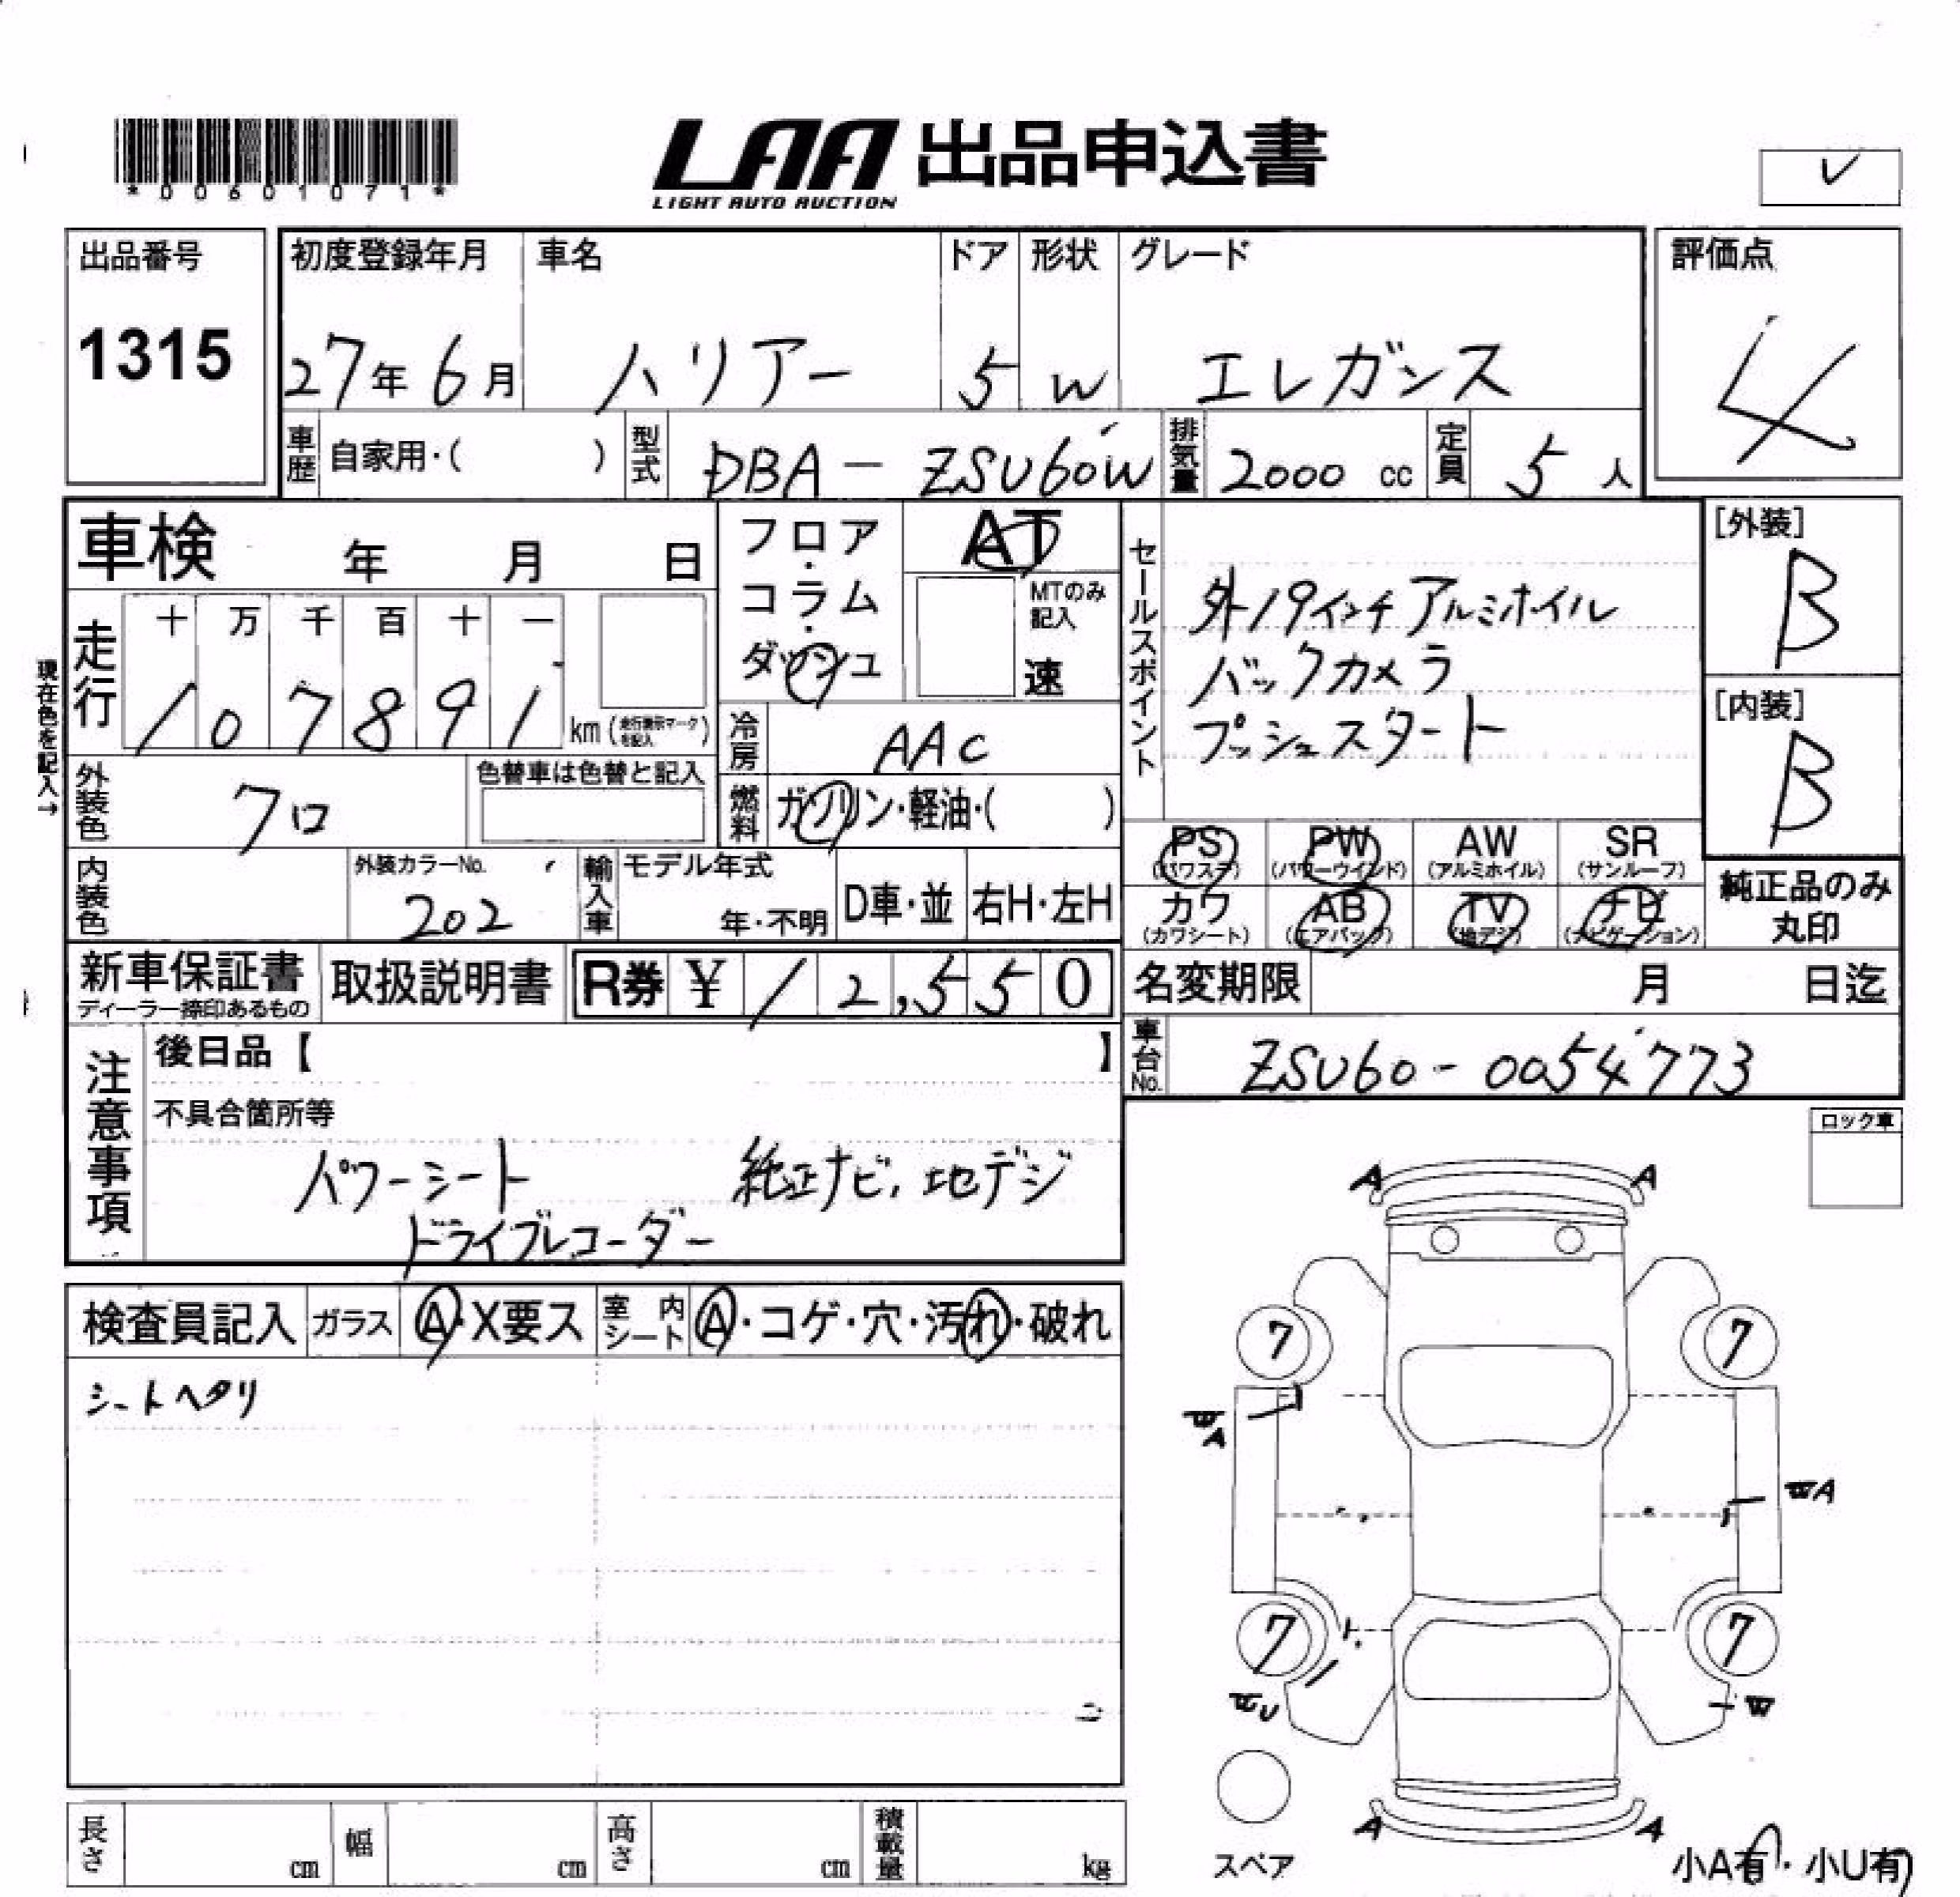 *00601071*
LAA 出品申込書
LIGHT AUTO AUCTION
レ
出品番号
1315
初度登録年月 車名 ドア 形状 グレード
27年 6月 ハリアー 5 W エレガンス
評価点
4
車歴 自家用・( ) 型式 DBA-ZSU60W 排気量 2000 cc 定員 5 人
車検 年 月 日
フロア・コラム・ダッシュ
AT
MTのみ記入
速
セールスポイント
外19インチアルミホイル
バックカメラ
プッシュスタート
[外装]
B
[内装]
B
現在色を記入→
走行 十 万 千 百 十 一
1 0 7 8 9 1 km (走行表示マークを記入)
冷房 AAC
外装色 クロ 色替車は色替と記入
燃料 ガソリン・軽油・( )
PS (パワステ) PW (パワーウインド) AW (アルミホイル) SR (サンルーフ)
カワ (カワシート) AB (エアバック) TV (地デジ) ナビ (ナビゲーション)
純正品のみ丸印
内装色 外装カラーNo. 202 輸入車 モデル年式 年・不明 D車・並 右H・左H
新車保証書 ディーラー捺印あるもの 取扱説明書 R券 ¥ 12,550
名変期限 月 日迄
車台No. ZSU60-0054773
注意事項
後日品【 】
不具合箇所等
パワーシート 純正ナビ、地デジ
ドライブレコーダー
ロック車
検査員記入 ガラス A・X要ス 室内シート A・コゲ・穴・汚れ・破れ
シートヘタリ
A A
7 7
A
A
7 7
U W
A A
スペア
小A有・小U有
長さ cm 幅 cm 高さ cm 積載量 kg